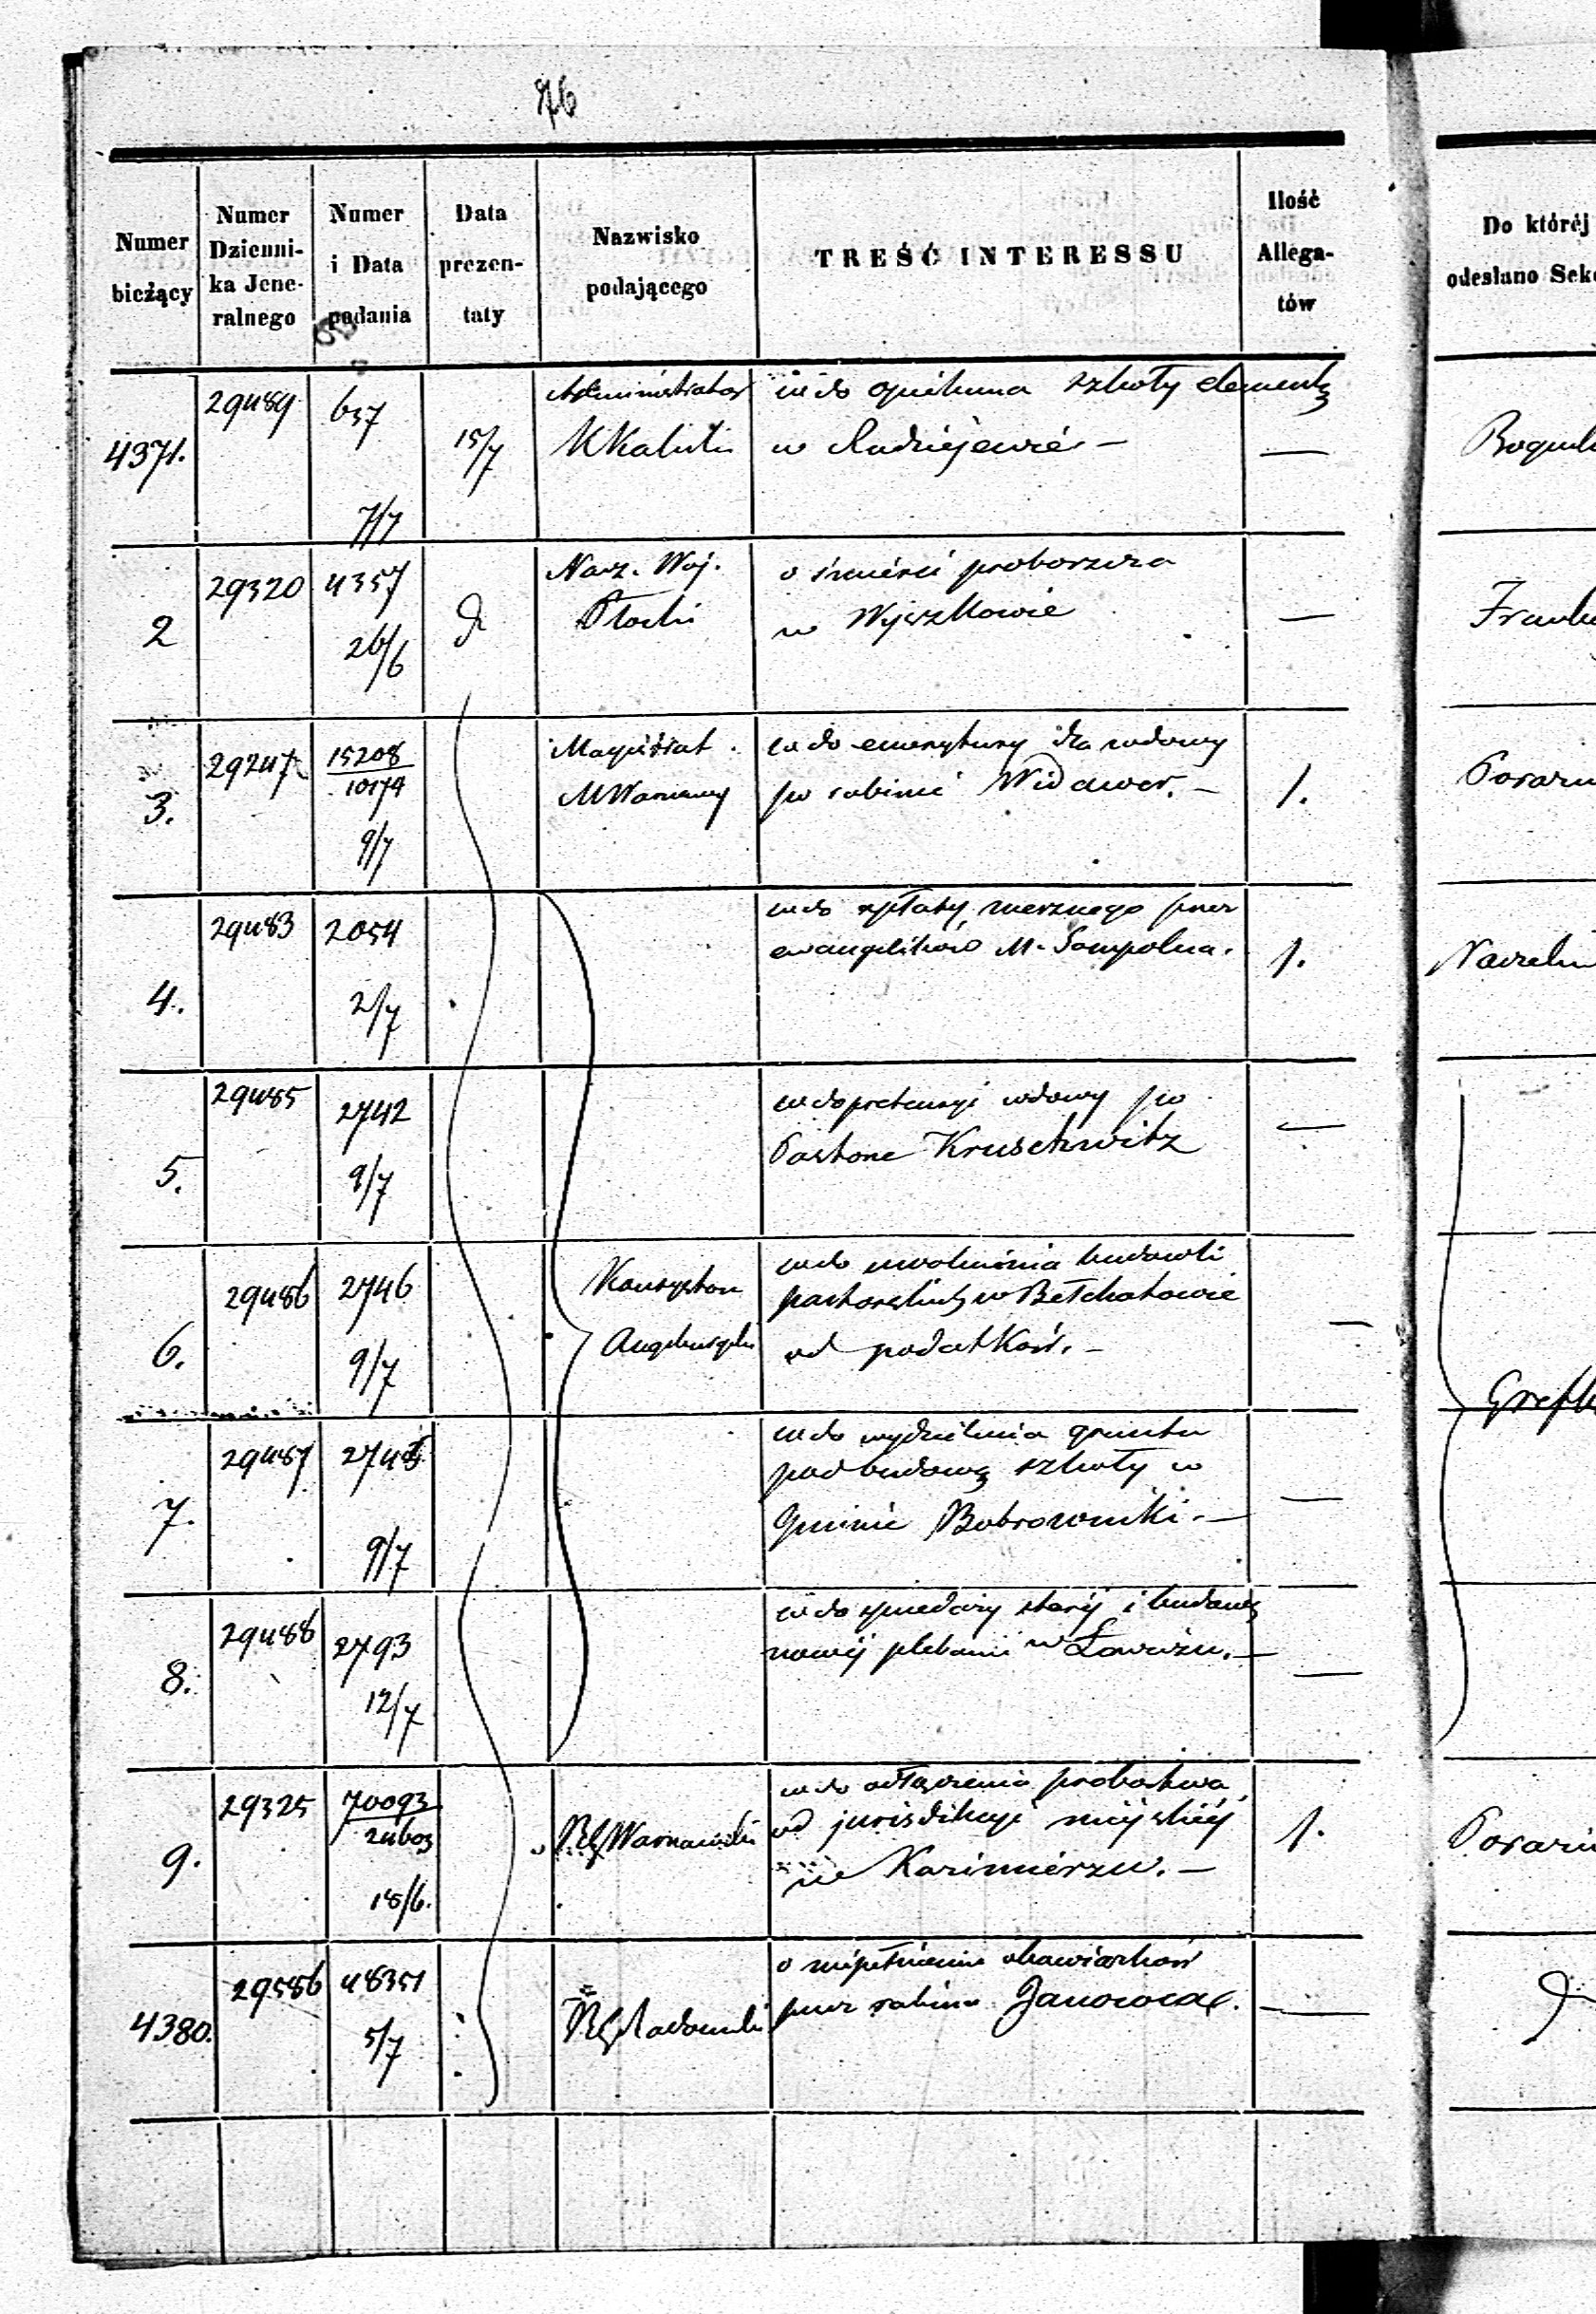 76
Numer bieżący
Numer Dzienni- ka Jene- ralnego
Numer i Data podania
Data prezen- taty
Nazwisko podającego
TREŚĆ INTERESSU
Ilość Allega- tów
Do któréj
odesłano Sek
4371.
29489
637
7/7
15/7
Administrator
KKaliski
w do opiekuna szkoły element
w Radziejewie —
—
2
29320
4357
26/6
Nacz. Woj.
Płocki
o śmierci proboszcza
w Wyszkowie
—
3.
29247
15208
10174
9/7
Magistrat
MWarszawy
w do emerytury dla wdowy
po rabinie Widawer. —
1.
4.
29483
2054
2/7
w do opłaty mesznego przez
ewangelików M. Sompolna.
1.
5.
29485
2742
9/7
w do pretensyi wdowy po
Pastorze Kruschwitz
—
6.
29486
2746
9/7
Konsystorz
Augsburgski
w do uwolnienia budowli
pastorskich w Bełchatowie
od podatków. —
—
7.
29487
2745
9/7
w do wydzielenia gruntu
pod budowę szkoły w
Gminie Bobrowniki. —
—
8.
29488
2793
12/7
w do sprzedaży starej i budowy
nowej plebanii w Łowiczu. —
—
9.
29325
70093
24603
18/6.
RG Warszawski
w do odłączenia probostwa
od jurisdikcyi miejskiej
w Kazimierzu. —
1.
4380.
29586
48351
5/7
RG Radomski
o niepełnieniu obowiązków
przez rabina
—